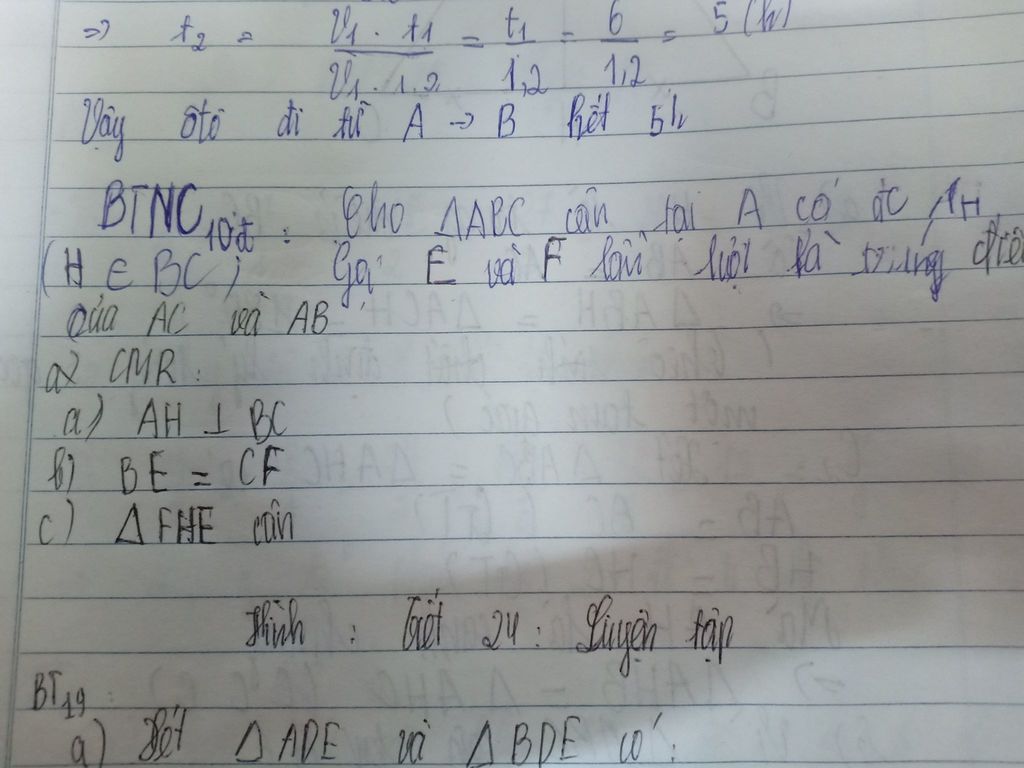 => t₂ = V₁ . t₁ / V₁ . 1,2 = t₁ / 1,2 = 6 / 1,2 = 5 (h)
Vậy ôtô đi từ A -> B hết 5h
BTNC 10đ : Cho ΔABC cân tại A có AH
(H ∈ BC) Gọi E và F lần lượt là trung điể
của AC và AB
a) CMR :
a) AH ⊥ BC
b) BE = CF
c) Δ FHE cân
Hình : Tiết 24 : Luyện tập
BT19 :
a) Xét Δ ADE và Δ BDE có :